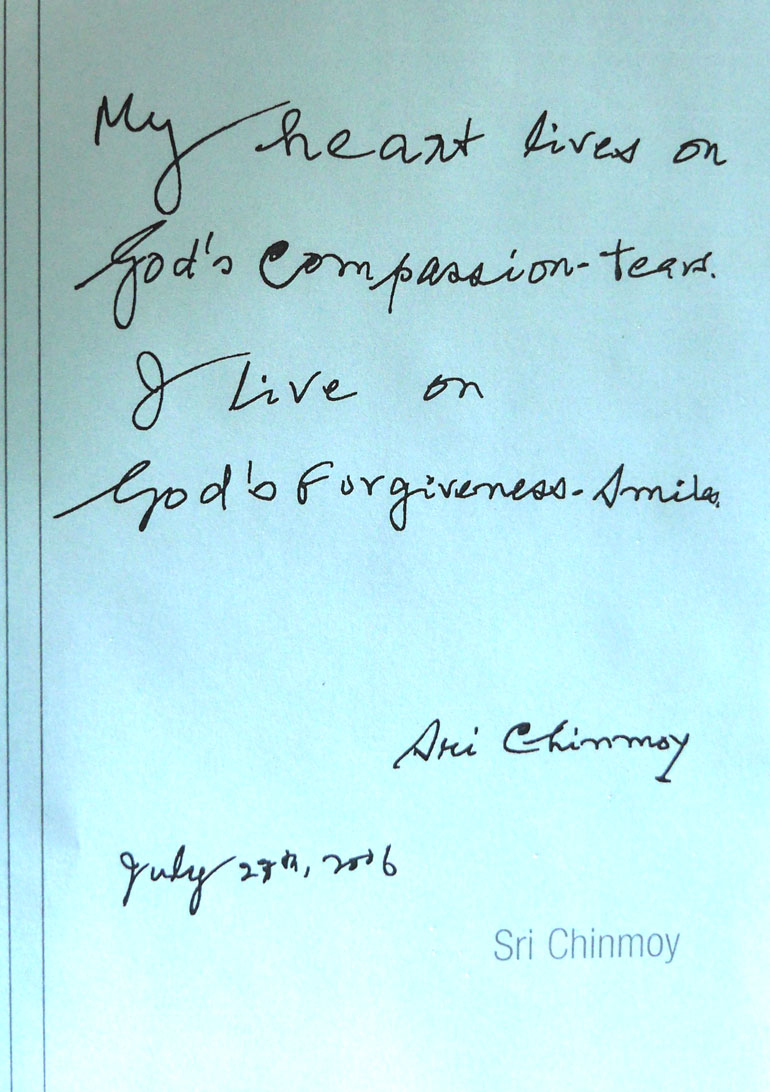 My heart lives on
God's Compassion-tears.
I live on
God's Forgiveness-Smiles.
Sri Chinmoy
July 27th, 2006
Sri Chinmoy